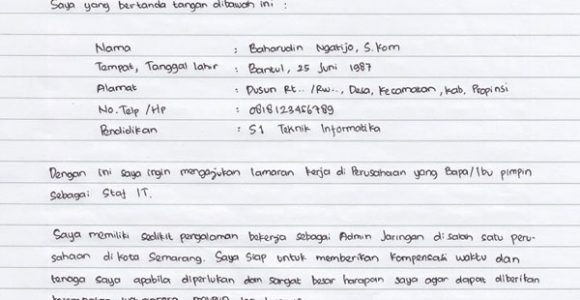 Saya yang bertanda tangan dibawah ini :
Nama : Baharudin Ngatijo, S.Kom
Tempat, Tanggal lahir : Bantul, 25 Juni 1987
Alamat : Dusun Rt.. /Rw.., Desa, Kecamatan, Kab, Propinsi
No. Telp /Hp : 0818123456789
Pendidikan : S1 Teknik Informatika
Dengan ini saya ingin mengajukan lamaran kerja di Perusahaan yang Bapa/Ibu pimpin
sebagai Staf IT.
Saya memiliki sedikit pengalaman bekerja sebagai Admin Jaringan di salah satu peru-
sahaan di kota Semarang. Saya siap untuk memberikan kompensasi waktu dan
tenaga saya apabila diperlukan dan sangat besar harapan saya agar dapat diberikan